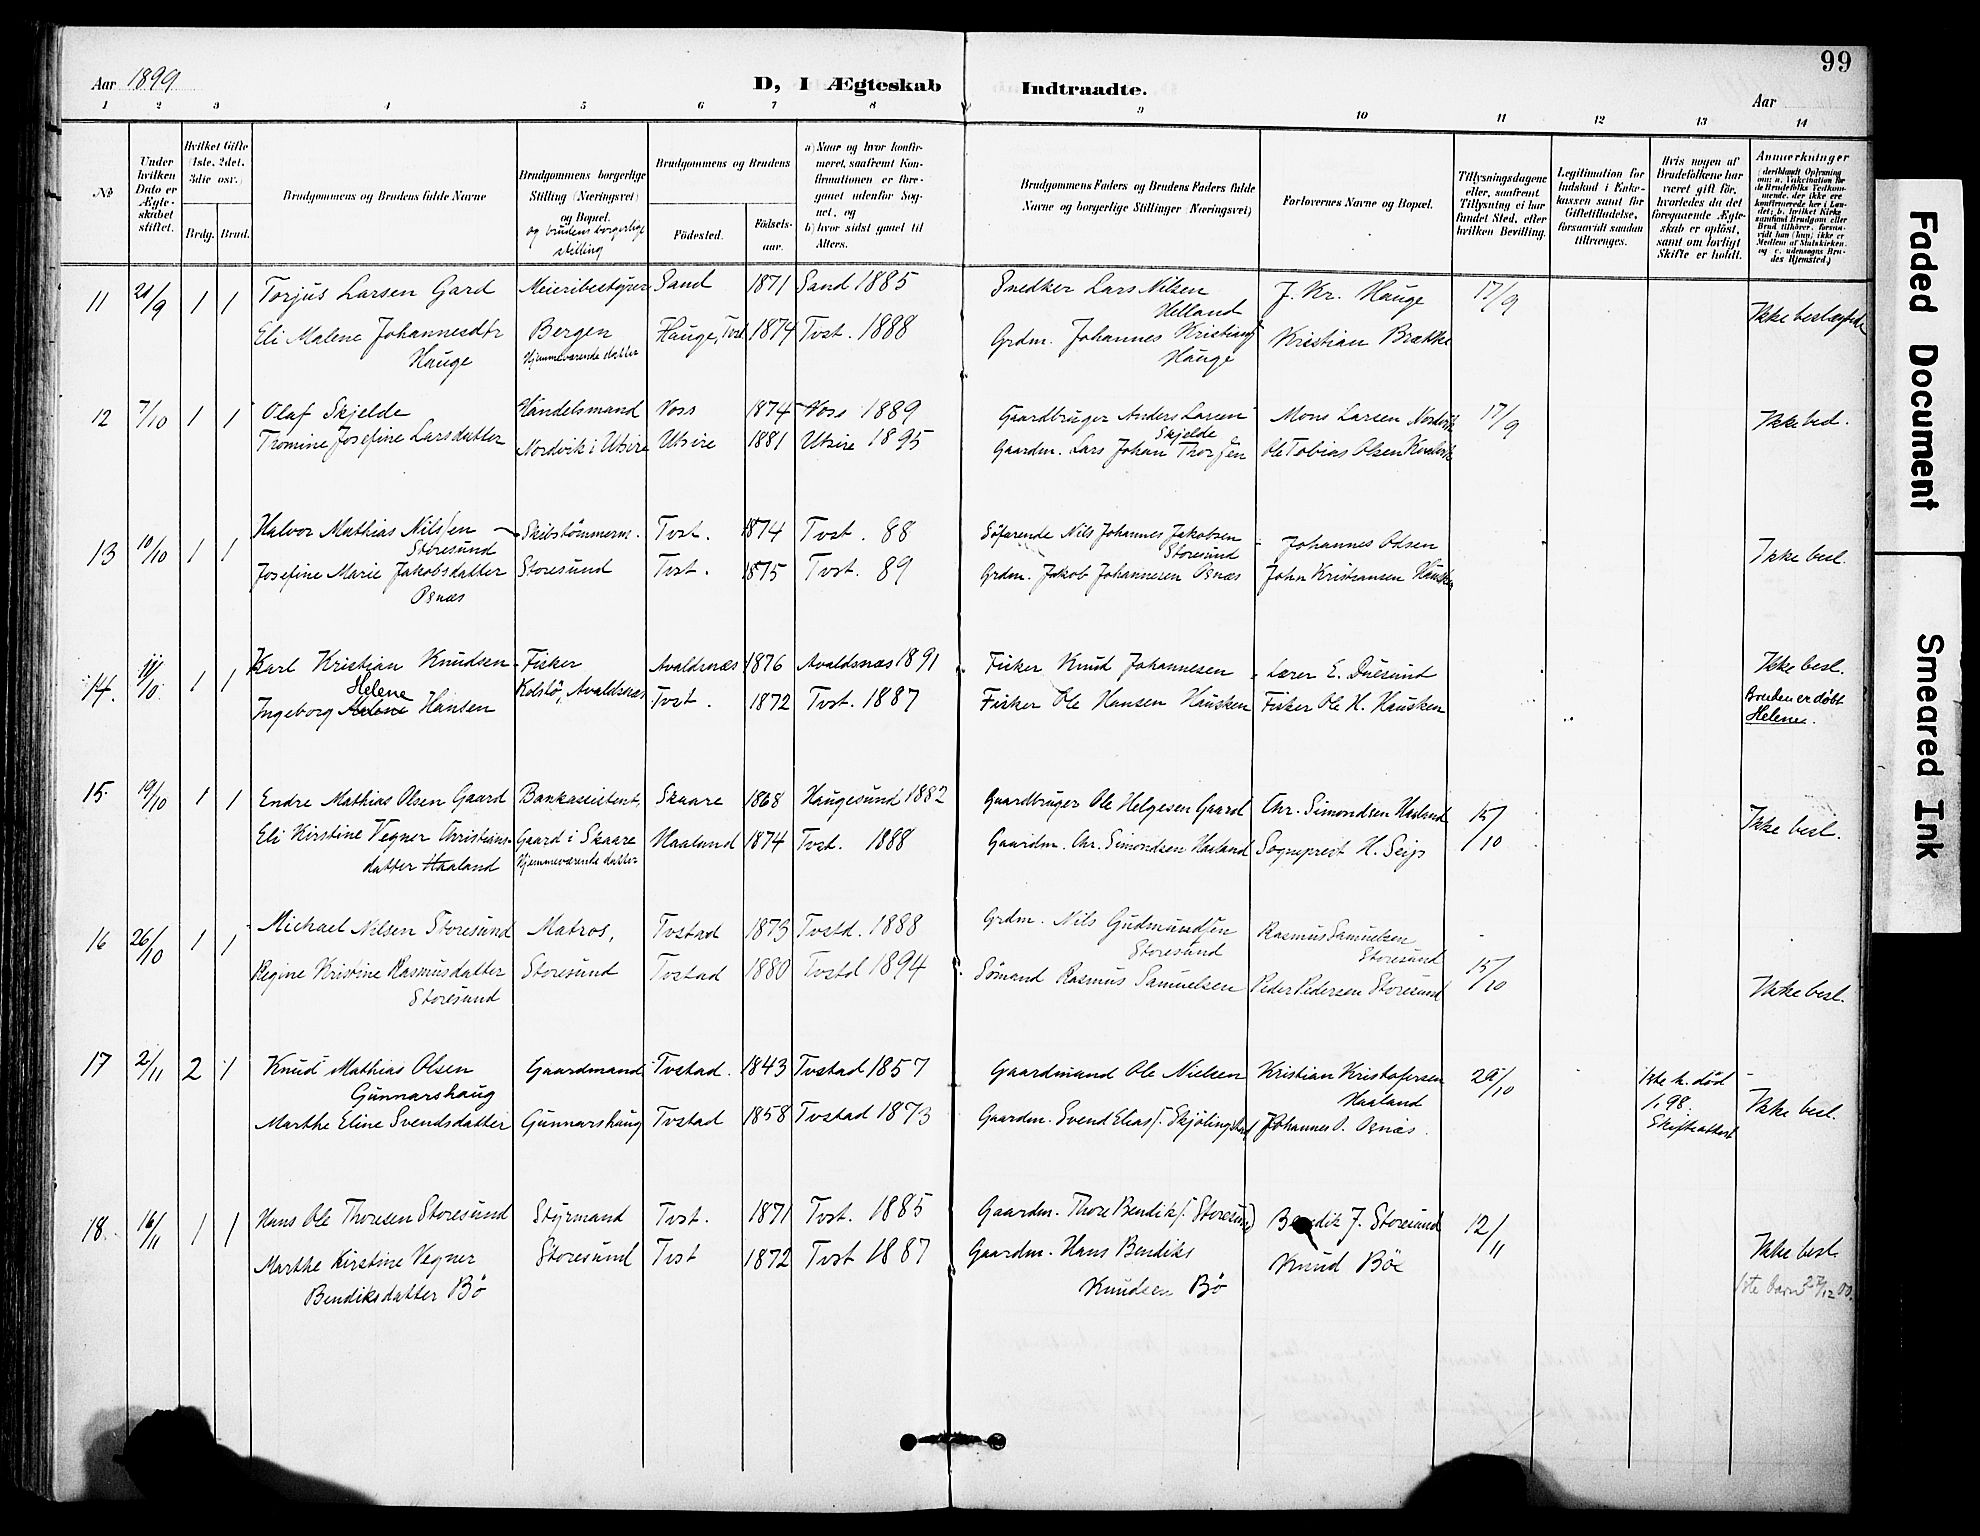 99
Aar 1899
D, I Ægteskab Indtraadte.
Aar
1 2 3 4 5 6 7 8 9 10 11 12 13 14
No
Under hvilken Dato er Ægteskabet stiftet.
Hvilket Gifte (1ste, 2det, 3die osv.)
Brdg. Brud.
Brudgommens og Brudens fulde Navne
Brudgommens borgerlige Stilling (Næringsvei) og Bopæl.
og brudens borgerlige stilling
Brudgommens og Brudens
Fødested.
Fødselsaar.
a) Naar og hvor konfirmeret, saafremt Konfirmationen er foregaaet udenfor Sognet, og
b) hvor sidst gaaet til Alters.
Brudgommens Faders og Brudens Faders fulde Navne og borgerlige Stillinger (Næringsvei)
Forlovernes Navne og Bopæl.
Tillysningsdagene eller, saafremt Tillysning ei har fundet Sted, efter hvilken Bevilling.
Legitimation for Indskud i Enkekassen samt for Giftetilladelse, forsaavidt saadan tiltrænges.
Hvis nogen af Brudefolkene har været gift før, hvorledes da det foregaaende Ægteskab er opløst, samt om lovligt Skifte er holdt.
Anmerkninger (deriblandt Oplysning om: a. Vakcination for de Brudefolks Vedkommende, der ikke ere konfirmerede her i Landet; b. hvilket Kirkesamfund Brudgom eller Brud tilhører, forsaavidt han (hun) ikke er Medlem af Statskirken, og c. udensogns Brudes Hjemsted.)
11 21/9 1 1 Torjus Larsen Gard Meieribestyrer Sand 1871 Sand 1885 Snedker Lars Nilsen Helland J. Kr. Hauge 17/9
Eli Malene Johannesdtr Hauge Bergen Hjemmeværende datter Hauge, Tvst 1874 Tvst. 1888 Grdm. Johannes Kristians Hauge Kristian Brække Ikke beslægtede
12 7/10 1 1 Olaf Skjelde Handelsmand Voss 1874 Voss 1889 Gaardbruger Anders Larsen Skjelde Mons Larsen Nordvik 17/9 Ikke besl.
Tromine Josefine Larsdatter Nordvik i Utsire Utsire 1881 Utsire 1895 Gaardm. Lars Johan Thorsen Ole Tobias Olsen
13 10/10 1 1 Halvor Mathias Nilssen Storesund Skibstømmerm. Tvst. 1874 Tvst. 88 Søfarende Nils Johannes Jakobsen Storesund Johannes Odsen
Josefine Marie Jakobsdatter Osnæs Storesund Tvst. 1875 Tvst. 89 Grdm. Jakob Johannesen Osnæs John Kristiansen Hausken Ikke besl.
14. 11/10 1 1 Karl Kristian Knudsen Fisker Avaldsnæs 1876 Avaldsnæs 1891 Fisker Knud Johannesen Lærer E. Duesund Ikke besl.
Helene
Ingeborg Malene Hansen Kolstø, Avaldsnæs Tvst. 1872 Tvst. 1887 Fisker Ole Hansen Hausken Fisker Ole H. Hausken Bruden er døbt Helene.
15. 19/10 1 1 Endre Mathias Olsen Gaard Bankassistent, Skaare 1868 Haugesund 1882 Gaardbruger Ole Helgesen Gaard Chr. Simondsen Haaland 15/10
Eli Kirstine Vegner Christiansdatter Haaland Gaard i Skaare Hjemmeværende datter Haaland 1874 Tvst. 1888 Gaardm. Chr. Simondsen Haaland Sogneprest H. Seip Ikke besl.
16 26/10 1 1 Michael Nilsen Storesund Matros, Tvstad 1873 Tvstd. 1888 Grdm. Nils Gudmundsen Storesund Rasmus Samuelsen Storesund
Regine Kristine Rasmusdatter Storesund Storesund Tvstad 1880 Tvstd 1894 Sømand Rasmus Samuelsen Peder Pedersen Storesund 15/10 Ikke besl.
17 2/11 2 1 Knud Mathias Olsen Gunnarshaug Gaardmand Tvstad. 1843 Tvstad 1857 Gaardmand Ole Nielsen Kristian Kristofersen Haaland 29/10 1ste h. død 1.98. Skifteattest
Marthe Eline Svendsdatter Gunnarshaug Tvstad 1858 Tvstad 1873 Gaardm. Svend Elias S. Skjølingstad Johannes O. Osnæs. Ikke besl.
18. 16/11 1 1 Hans Ole Thoresen Storesund Styrmand Tvst. 1871 Tvst. 1885 Gaardm. Thore Bendiks. Storesund Bendik J. Storesund 12/11
Marthe Kirstine Vegner Bendiksdatter Bø Storesund Tvst 1872 Tvst 1887 Gaardm. Hans Bendiks Knudsen Bø Knud Bøe Ikke besl.
1ste barn 27/12 00.
Faded Document
Smeared Ink